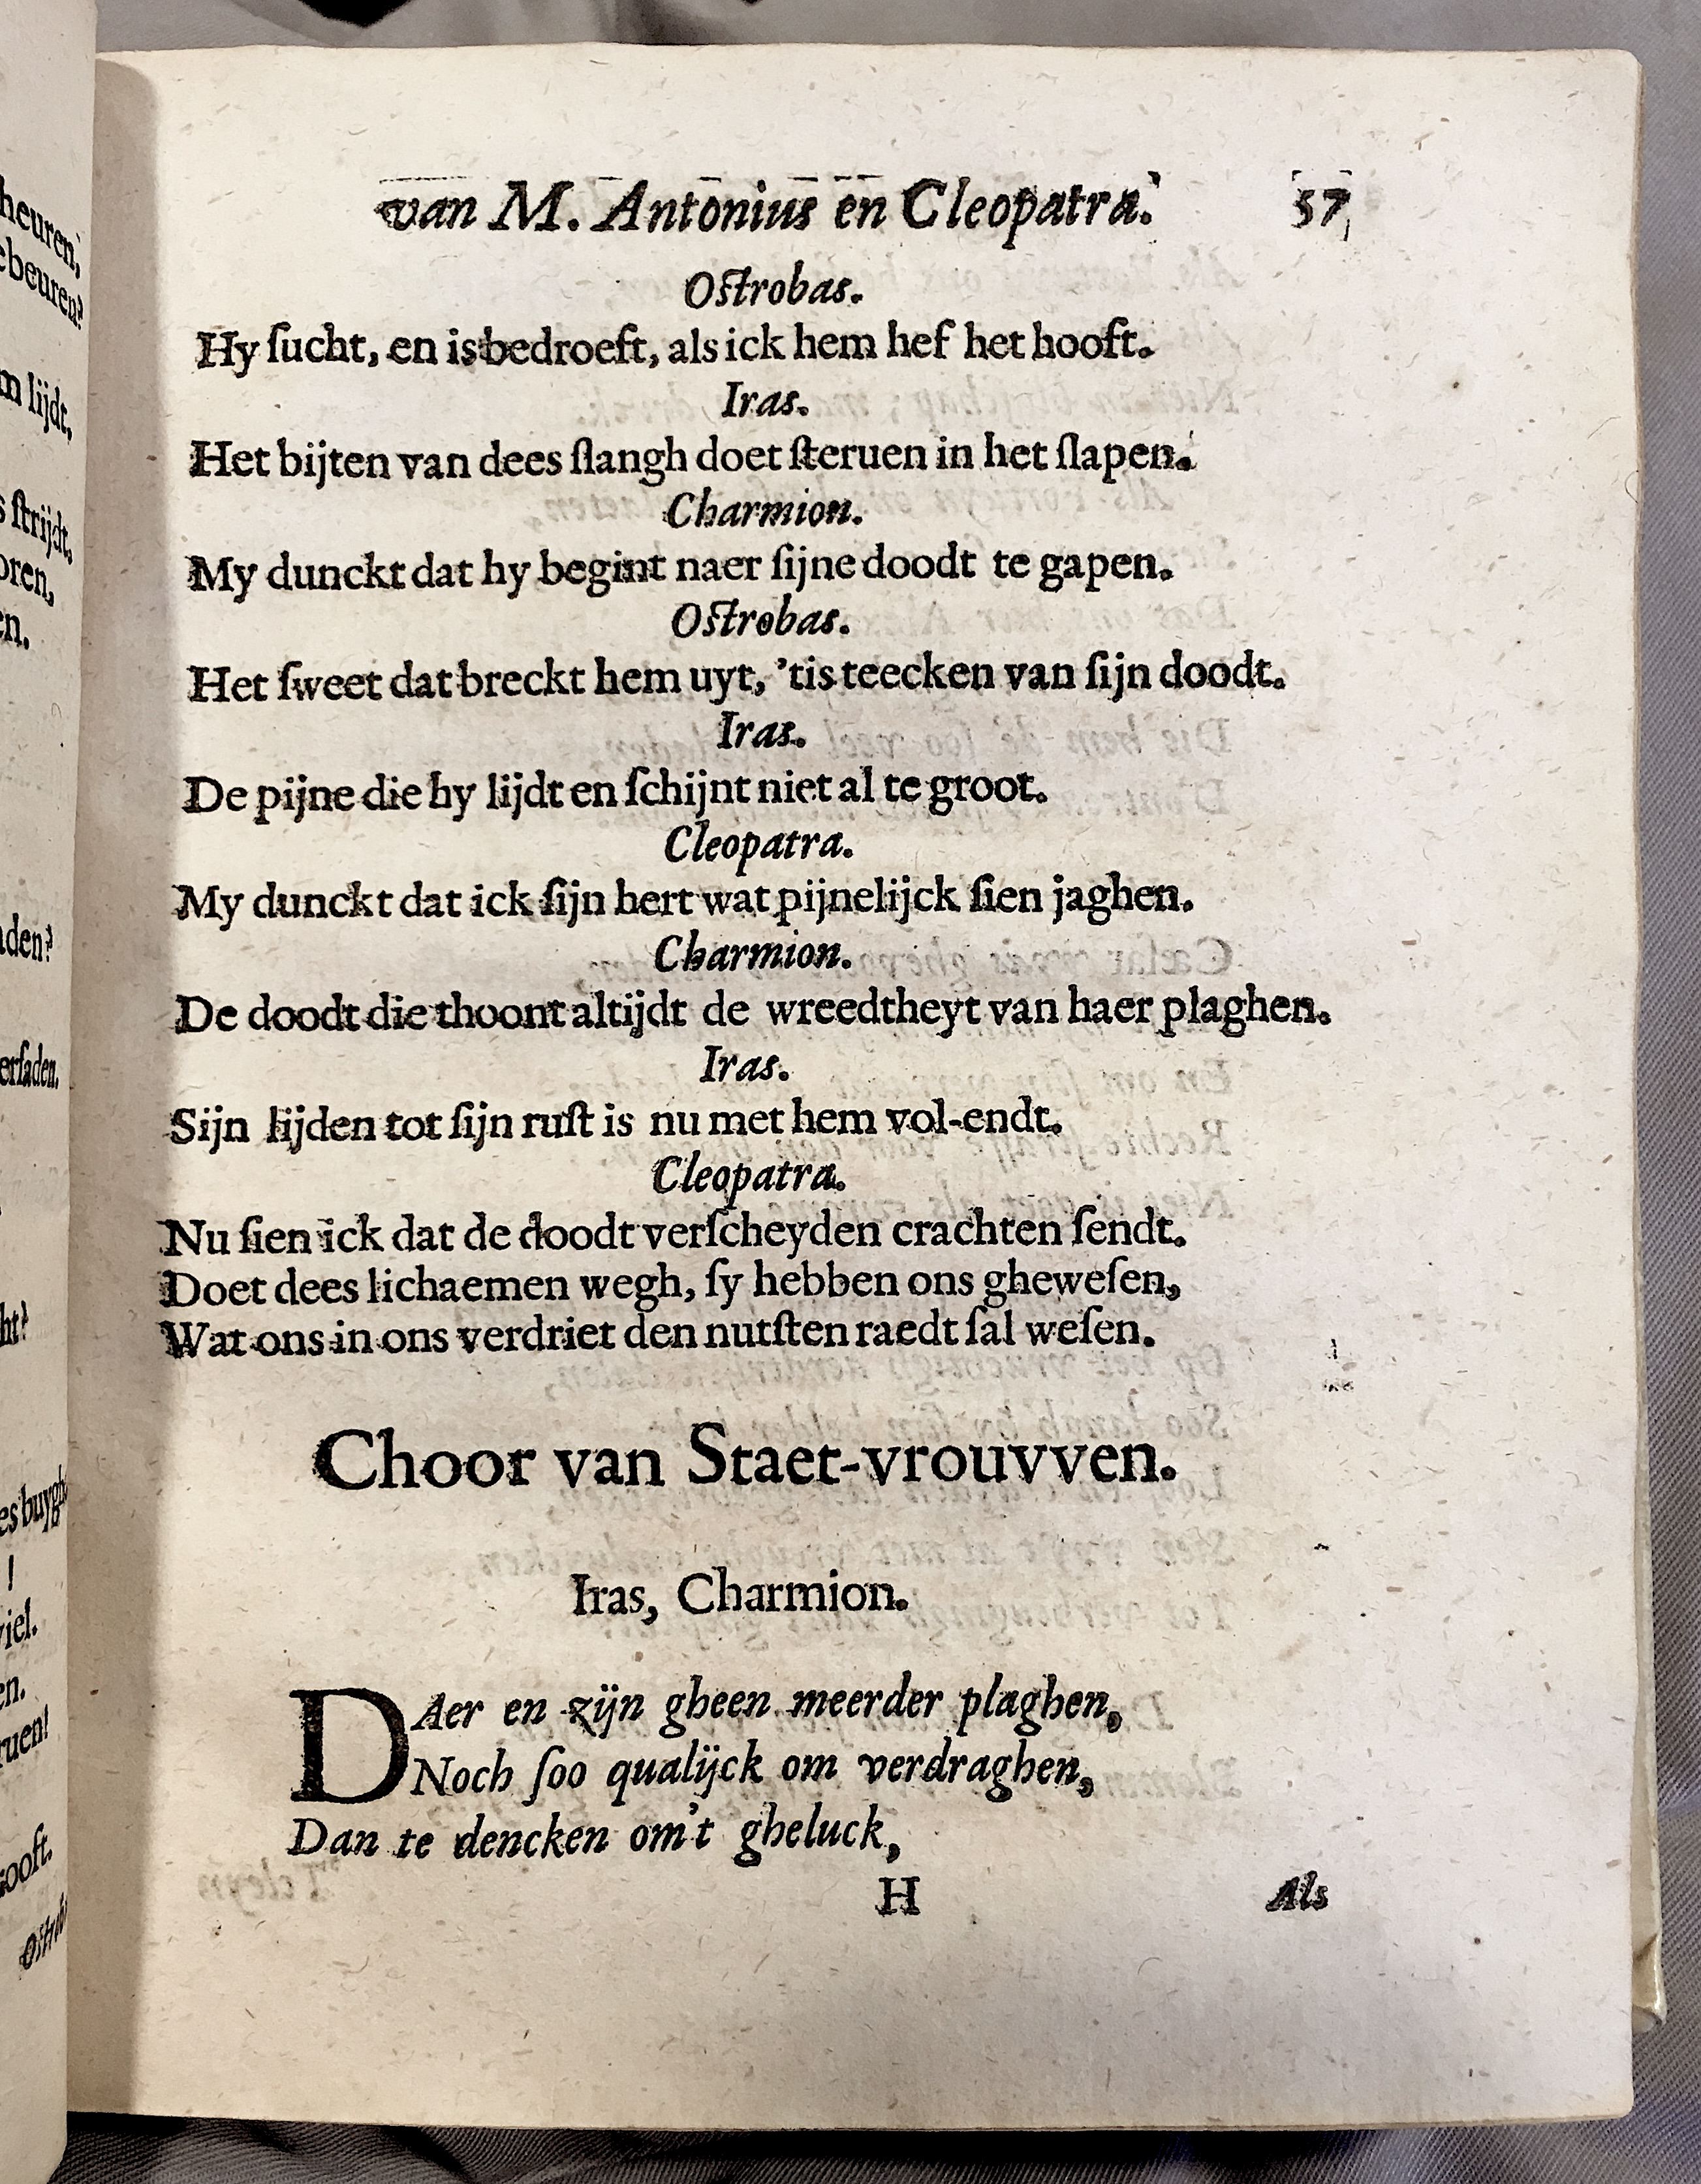 van M. Antonius en Cleopatra. 57
Ostrobas.
Hy ſucht, en is bedroeft, als ick hem hef het hooft.
Iras.
Het bijten van dees ſlangh doet ſteruen in het ſlapen.
Charmion.
My dunckt dat hy begint naer ſijne doodt te gapen.
Ostrobas.
Het ſweet dat breckt hem uyt, 'tis teecken van ſijn doodt.
Iras.
De pijne die hy lijdt en ſchijnt niet al te groot.
Cleopatra.
My dunckt dat ick ſijn hert wat pijnelijck ſien jaghen.
Charmion.
De doodt die thoont altijdt de wreedtheyt van haer plaghen.
Iras.
Sijn lijden tot ſijn ruſt is nu met hem vol-endt.
Cleopatra.
Nu ſien ick dat de doodt verſcheyden crachten ſendt.
Doet dees lichaemen wegh, ſy hebben ons gheweſen,
Wat ons in ons verdriet den nutſten raedt ſal weſen.
Choor van Staet-vrouvven.
Iras, Charmion.
DAer en zijn gheen meerder plaghen,
Noch ſoo qualijck om verdraghen,
Dan te dencken om't gheluck,
H Als